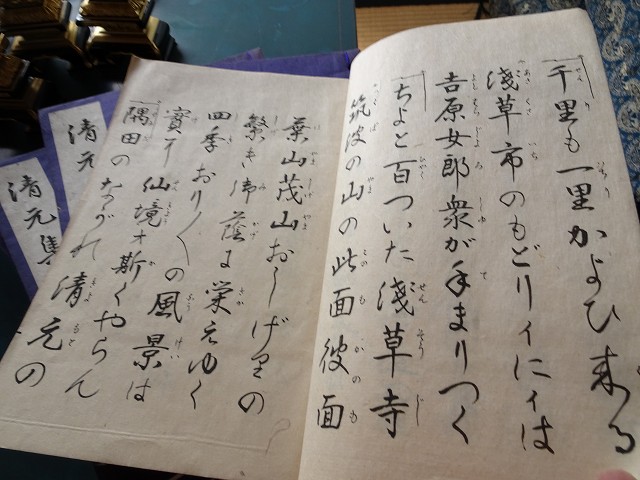 千里も一里かよひ来る
淺草市のもどりィにィは
吉原女郎衆が手まりつく
ちよと百ついた淺草寺
筑波の山の此面彼面
葉山茂山おしげりの
繁き御蔭に栄えゆく
四季おり〱の風景は
實に仙境も斯くやらん
隅田のながれ清元の
清元
清元